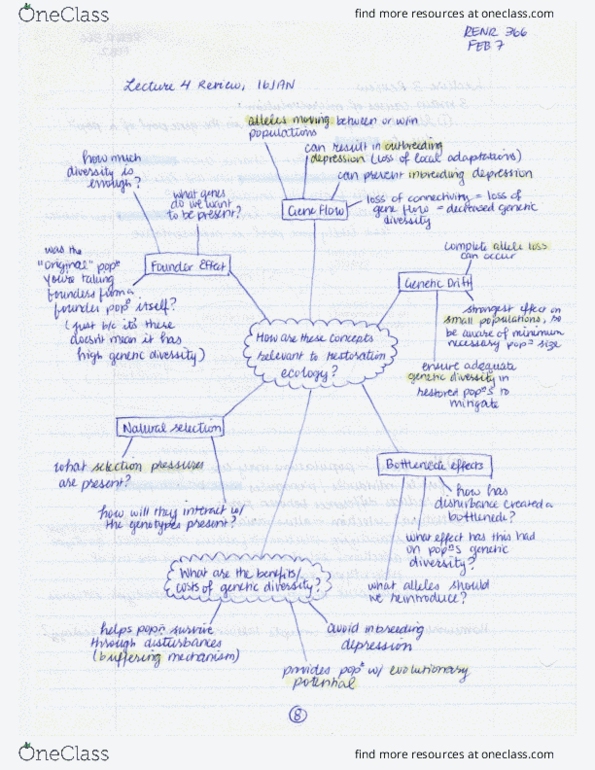 OneClass
find more resources at oneclass.com
RENR 366
FEB 7
Lecture 4 Review, 16JAN
alleles moving between or w/in
populations
can result in outbreeding
depression (loss of local adaptations)
can prevent inbreeding depression
Gene Flow
loss of connectivity = loss of
gene flow = decreased genetic
diversity
how much
diversity is
enough?
what genes
do we want
to be present?
Founder Effect
was the
"original" popⁿ
you're taking
founders from a
founder popⁿ itself?
(just b/c it's there
doesn't mean it has
high genetic diversity)
complete allele loss
can occur
Genetic Drift
strongest effect on
small populations, so
be aware of minimum
necessary popⁿ size
ensure adequate
genetic diversity in
restored popⁿs to
mitigate
How are these concepts
relevant to restoration
ecology?
Natural selection
what selection pressures
are present?
how will they interact w/
the genotypes present?
Bottleneck effects
how has
disturbance created a
bottleneck?
what effect has this had
on popⁿs genetic
diversity?
what alleles should
we reintroduce?
What are the benefits/
costs of genetic diversity?
helps popⁿ survive
through disturbances
(buffering mechanism)
avoid inbreeding
depression
provides popⁿ w/ evolutionary
potential
8
OneClass
find more resources at oneclass.com